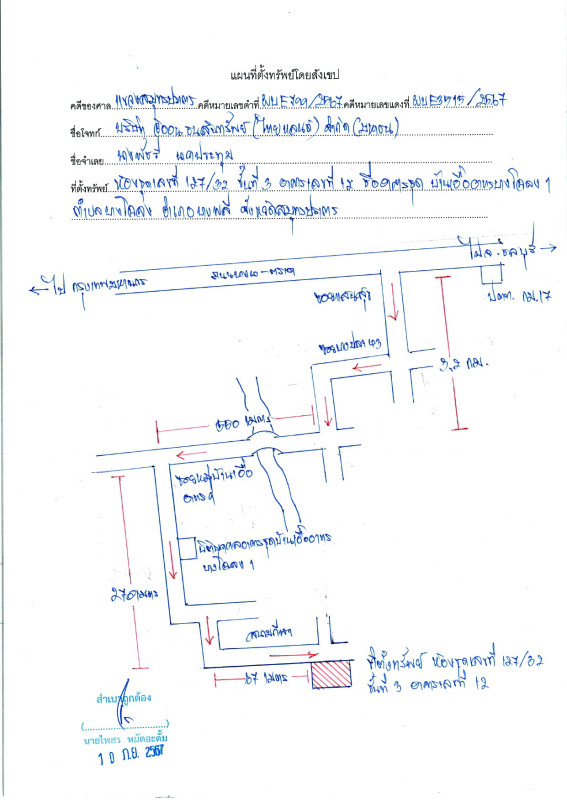 แผนที่ตั้งทรัพย์โดยสังเขป
คดีของศาล แขวงสมุทรปราการ คดีหมายเลขดำที่ ผบE799/2567 คดีหมายเลขแดงที่ ผบE2715/2567
ชื่อโจทก์ บริษัท อิออน ธนสินทรัพย์ (ไทยแลนด์) จำกัด (มหาชน)
ชื่อจำเลย นางพัชรี นคประทุม
ที่ตั้งทรัพย์ ห้องชุดเลขที่ 127/32 ชั้นที่ 3 อาคารเลขที่ 12 ชื่ออาคารชุด บ้านเอื้ออาทรบางโฉลง 1
ตำบลบางโฉลง อำเภอบางพลี จังหวัดสมุทรปราการ
ไป จ.ชลบุรี
ไป กรุงเทพมหานคร
ถนนบางนา-ตราด
ปตท. กม.17
ซอยบางปลา 43
3,2 กม.
550 เมตร
ซอยหมู่บ้านเอื้อ
อาทร
นิติบุคคลอาคารชุดบ้านเอื้ออาทร
บางโฉลง 1
270 เมตร
สนามกีฬา
67 เมตร
ที่ตั้งทรัพย์ ห้องชุดเลขที่ 127/32
ชั้นที่ 3 อาคารเลขที่ 12
สำเนาถูกต้อง
(..............................)
นายไพสร หมัดอะดั้ม
10 ก.ย. 2567